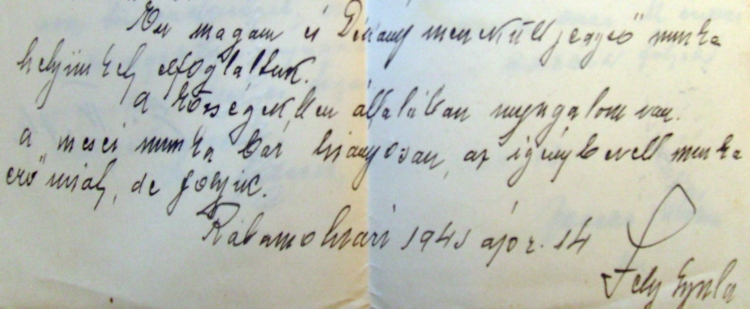 Én magam és menekült jegyző munka
helyünket elfoglaltuk.
A községekben általában nyugalom van.
a mezei munka bár hiányosan, az igénybevett munka
erő miatt, de folyik.
Rábamolnári 1945 ápr. 14
Gyula